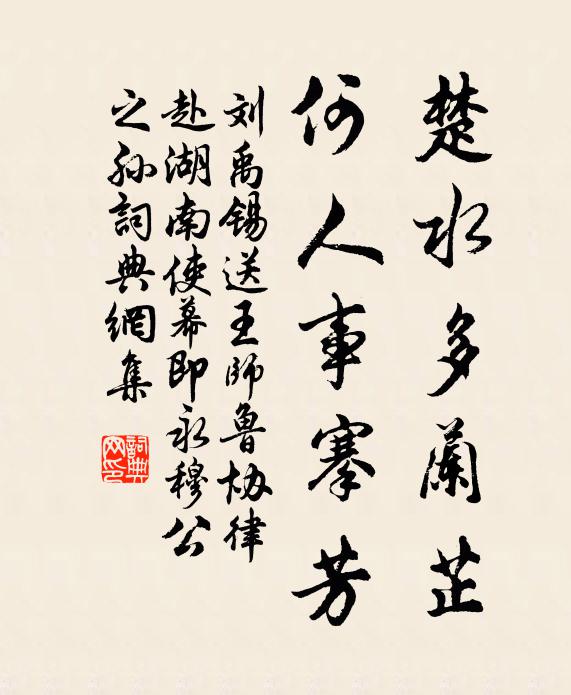 楚水多蘭芷
何人事搴芳
刘禹锡送王师魯协律
赴湖南使幕即永穆公
之孙詞典網集
詞典网印